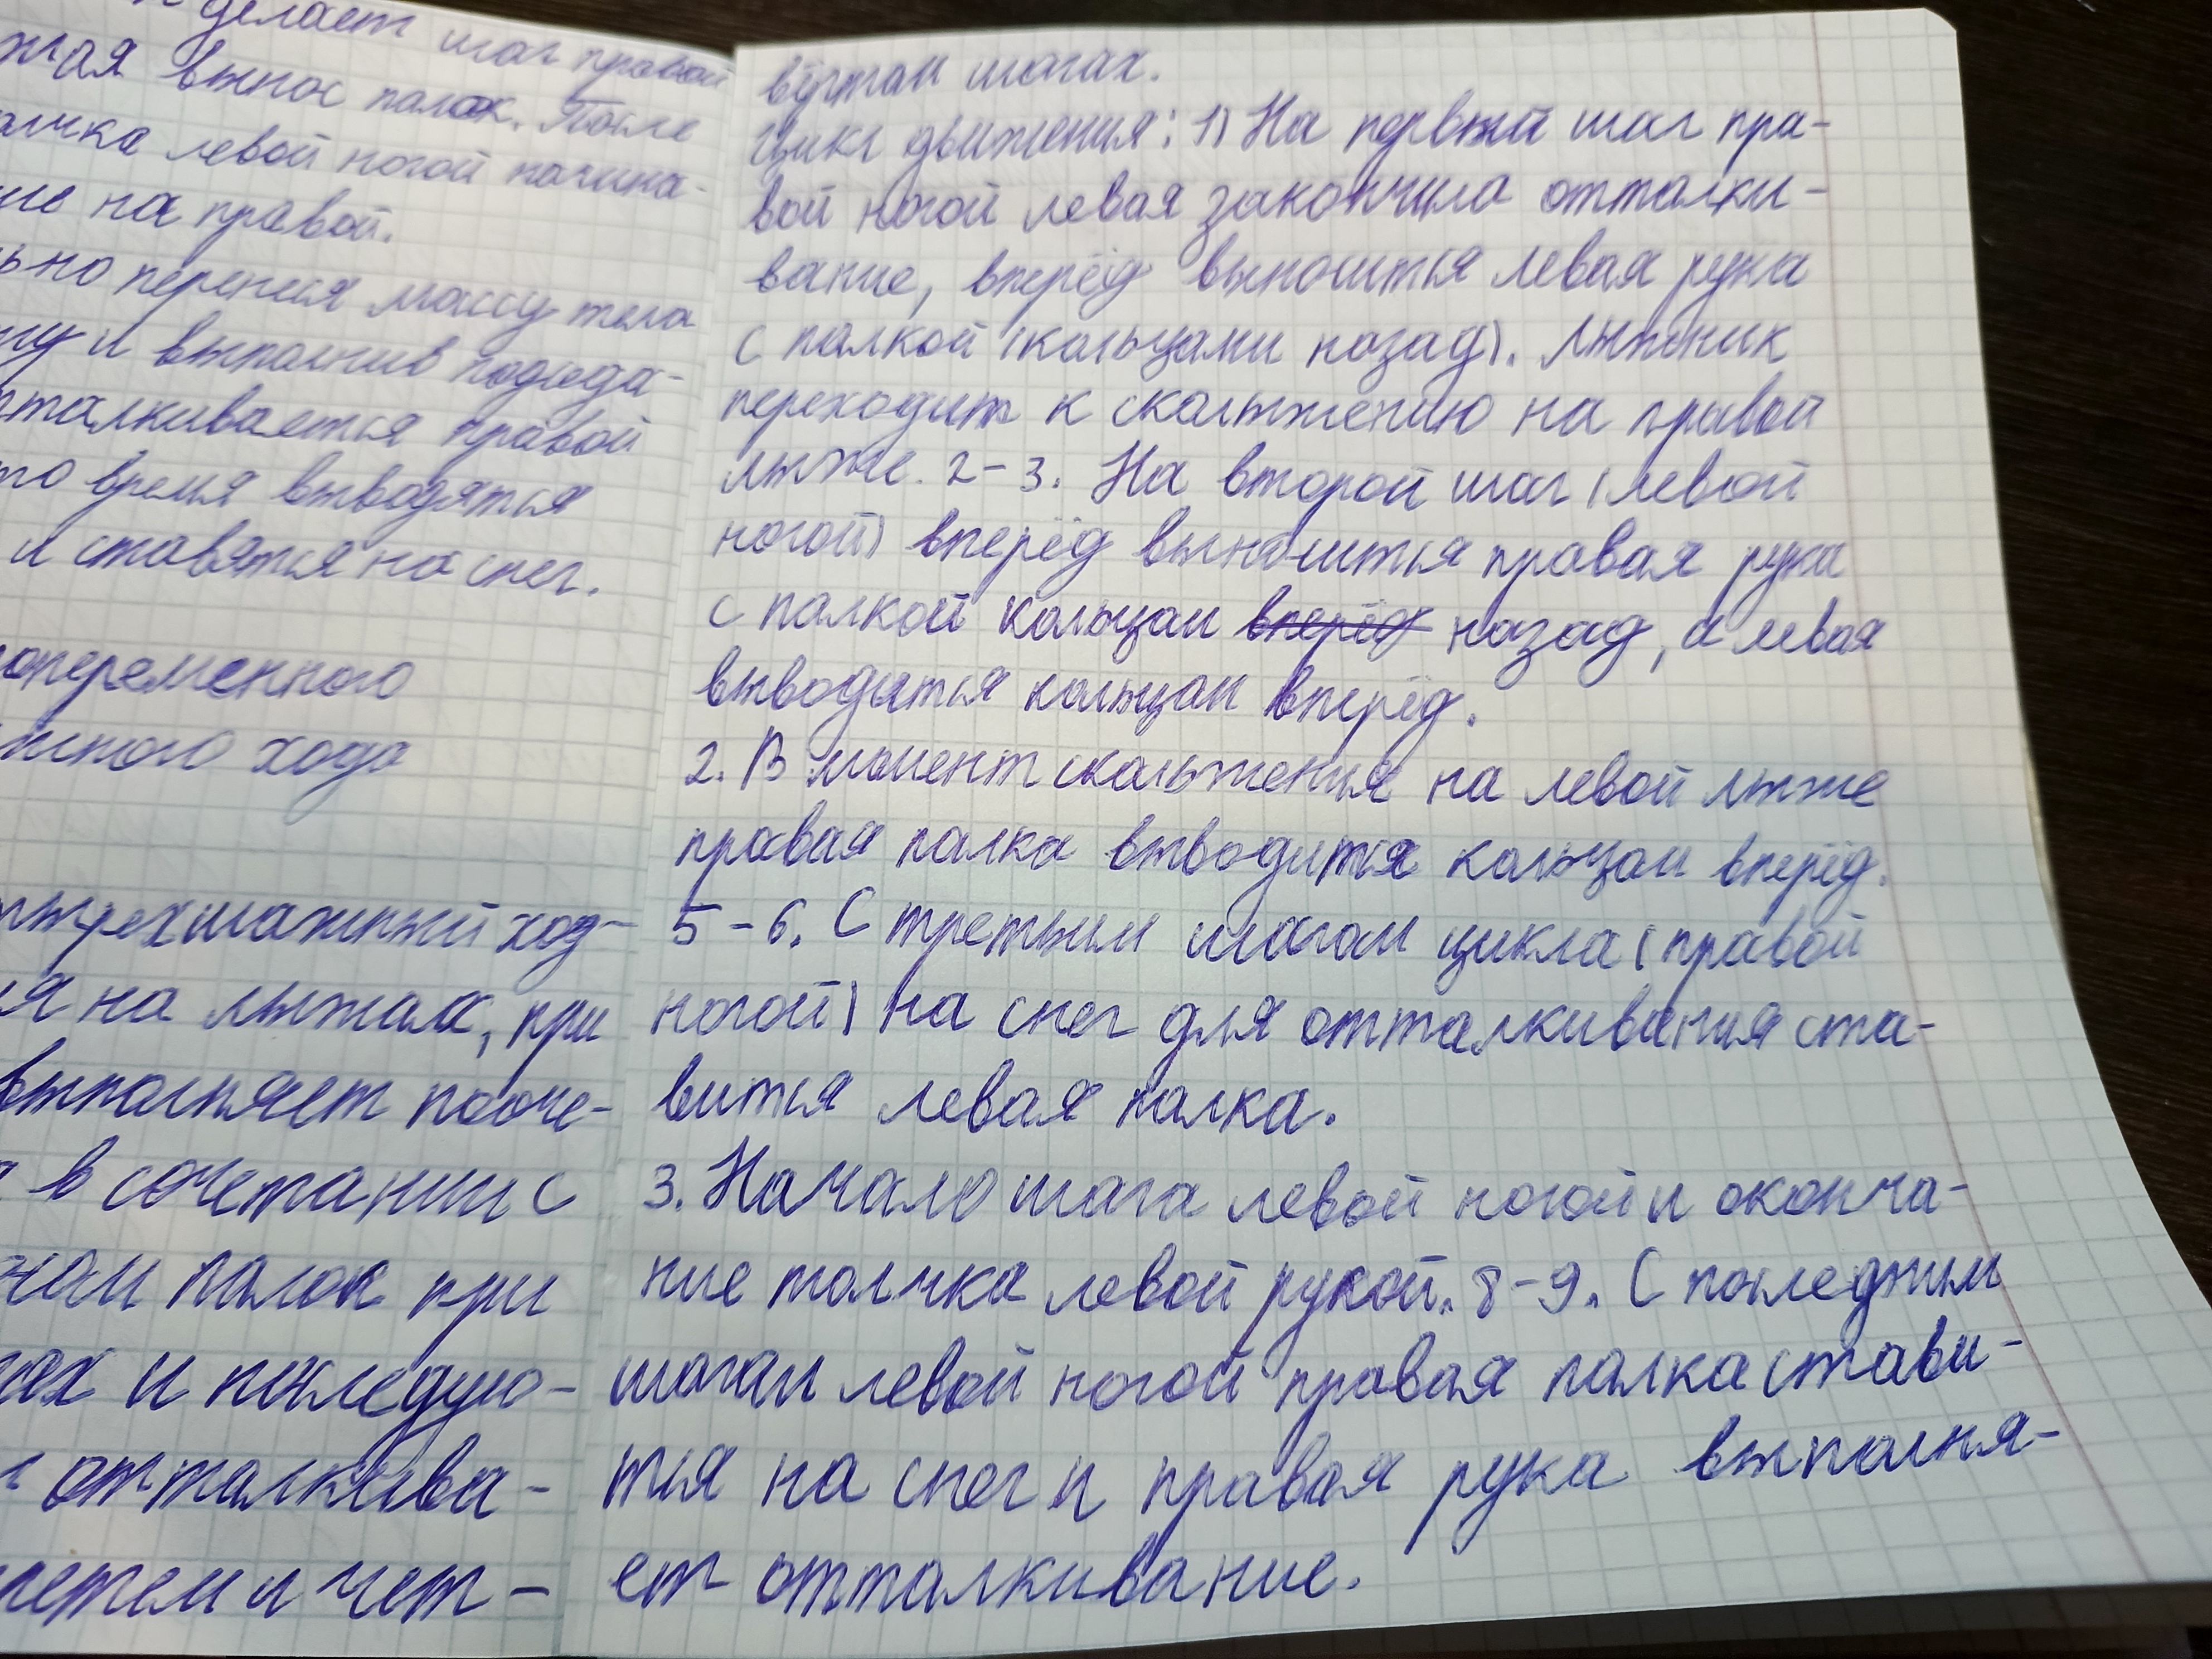 делает шаг правой
жая вынос палок. После
лчка левой ногой начина-
ие на правой.
ьно перенеся массу тела
гу и выполнив подседа-
тталкивается правой
то время выводятся
и ставятся на снег.
опеременного
жного хода
тырехшажный ход-
я на лыжах, при
выполняет пооче-
в сочетании с
ном палок при
гах и последую-
отталкива-
етьем и чет-
вёртом шагах.
Цикл движения: 1) На первый шаг пра-
вой ногой левая закончила отталки-
вание, вперёд выносится левая рука
с палкой (кольцами назад). Лыжник
переходит к скольжению на правой
лыже. 2-3. На второй шаг (левой
ногой) вперёд выносится правая рука
с палкой кольцом вперёд назад, а левая
выводится кольцом вперёд.
2. В момент скольжения на левой лыже
правая палка выводится кольцом вперёд.
5-6. С третьим шагом цикла (правой
ногой) на снег для отталкивания ста-
вится левая палка.
3. Начало шага левой ногой и оконча-
ние толчка левой рукой. 8-9. С последним
шагом левой ногой правая палка стави-
тся на снег и правая рука выполня-
ет отталкивание.